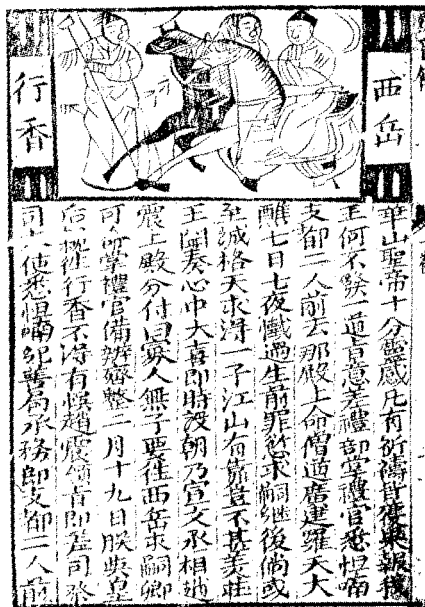 西岳
行香
華山聖帝十分靈感凡有祈禱皆獲果報我
王何不發一道旨意差禮部掌禮官悉怛喃
支都二人前去那殿上命僧道廣建羅天大
醮七日七夜懺過生前罪愆求嗣繼後倘或
至誠格天求得一子江山有靠豈不甚美莊
王聞奏心中大喜即時設朝乃宣文丞相趙
震上殿分付曰寡人無子要往西岳求嗣卿
可命掌禮官備辦齊整二月十九日朕與皇
后親往行香不得有悞趙震領旨即差司祭
司大使悉怛喃紀醫局承務郎支都二人前